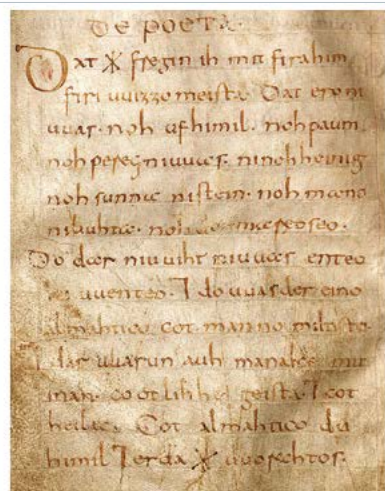 DE POETA.
Dat ᚼ fregin ih mit firahim
firi uuizzo meista. Dat ero ni
uuas. noh ufhimil. noh paum
noh pereg ni uuas. ninohheinig
noh sunna nistein. noh mano
niliuhta. noh der mareoseo.
Do dar niuuiht niuuas enteo
ni uuenteo. ⁊ do uuas der eino
almahtico cot manno miltisto
⁊ dar uuarun auh manake mit
inan. cootlihhe geista. ⁊ cot
heilac. Cot almahtico du
himil ⁊ erda ᚼ uuorahtos.